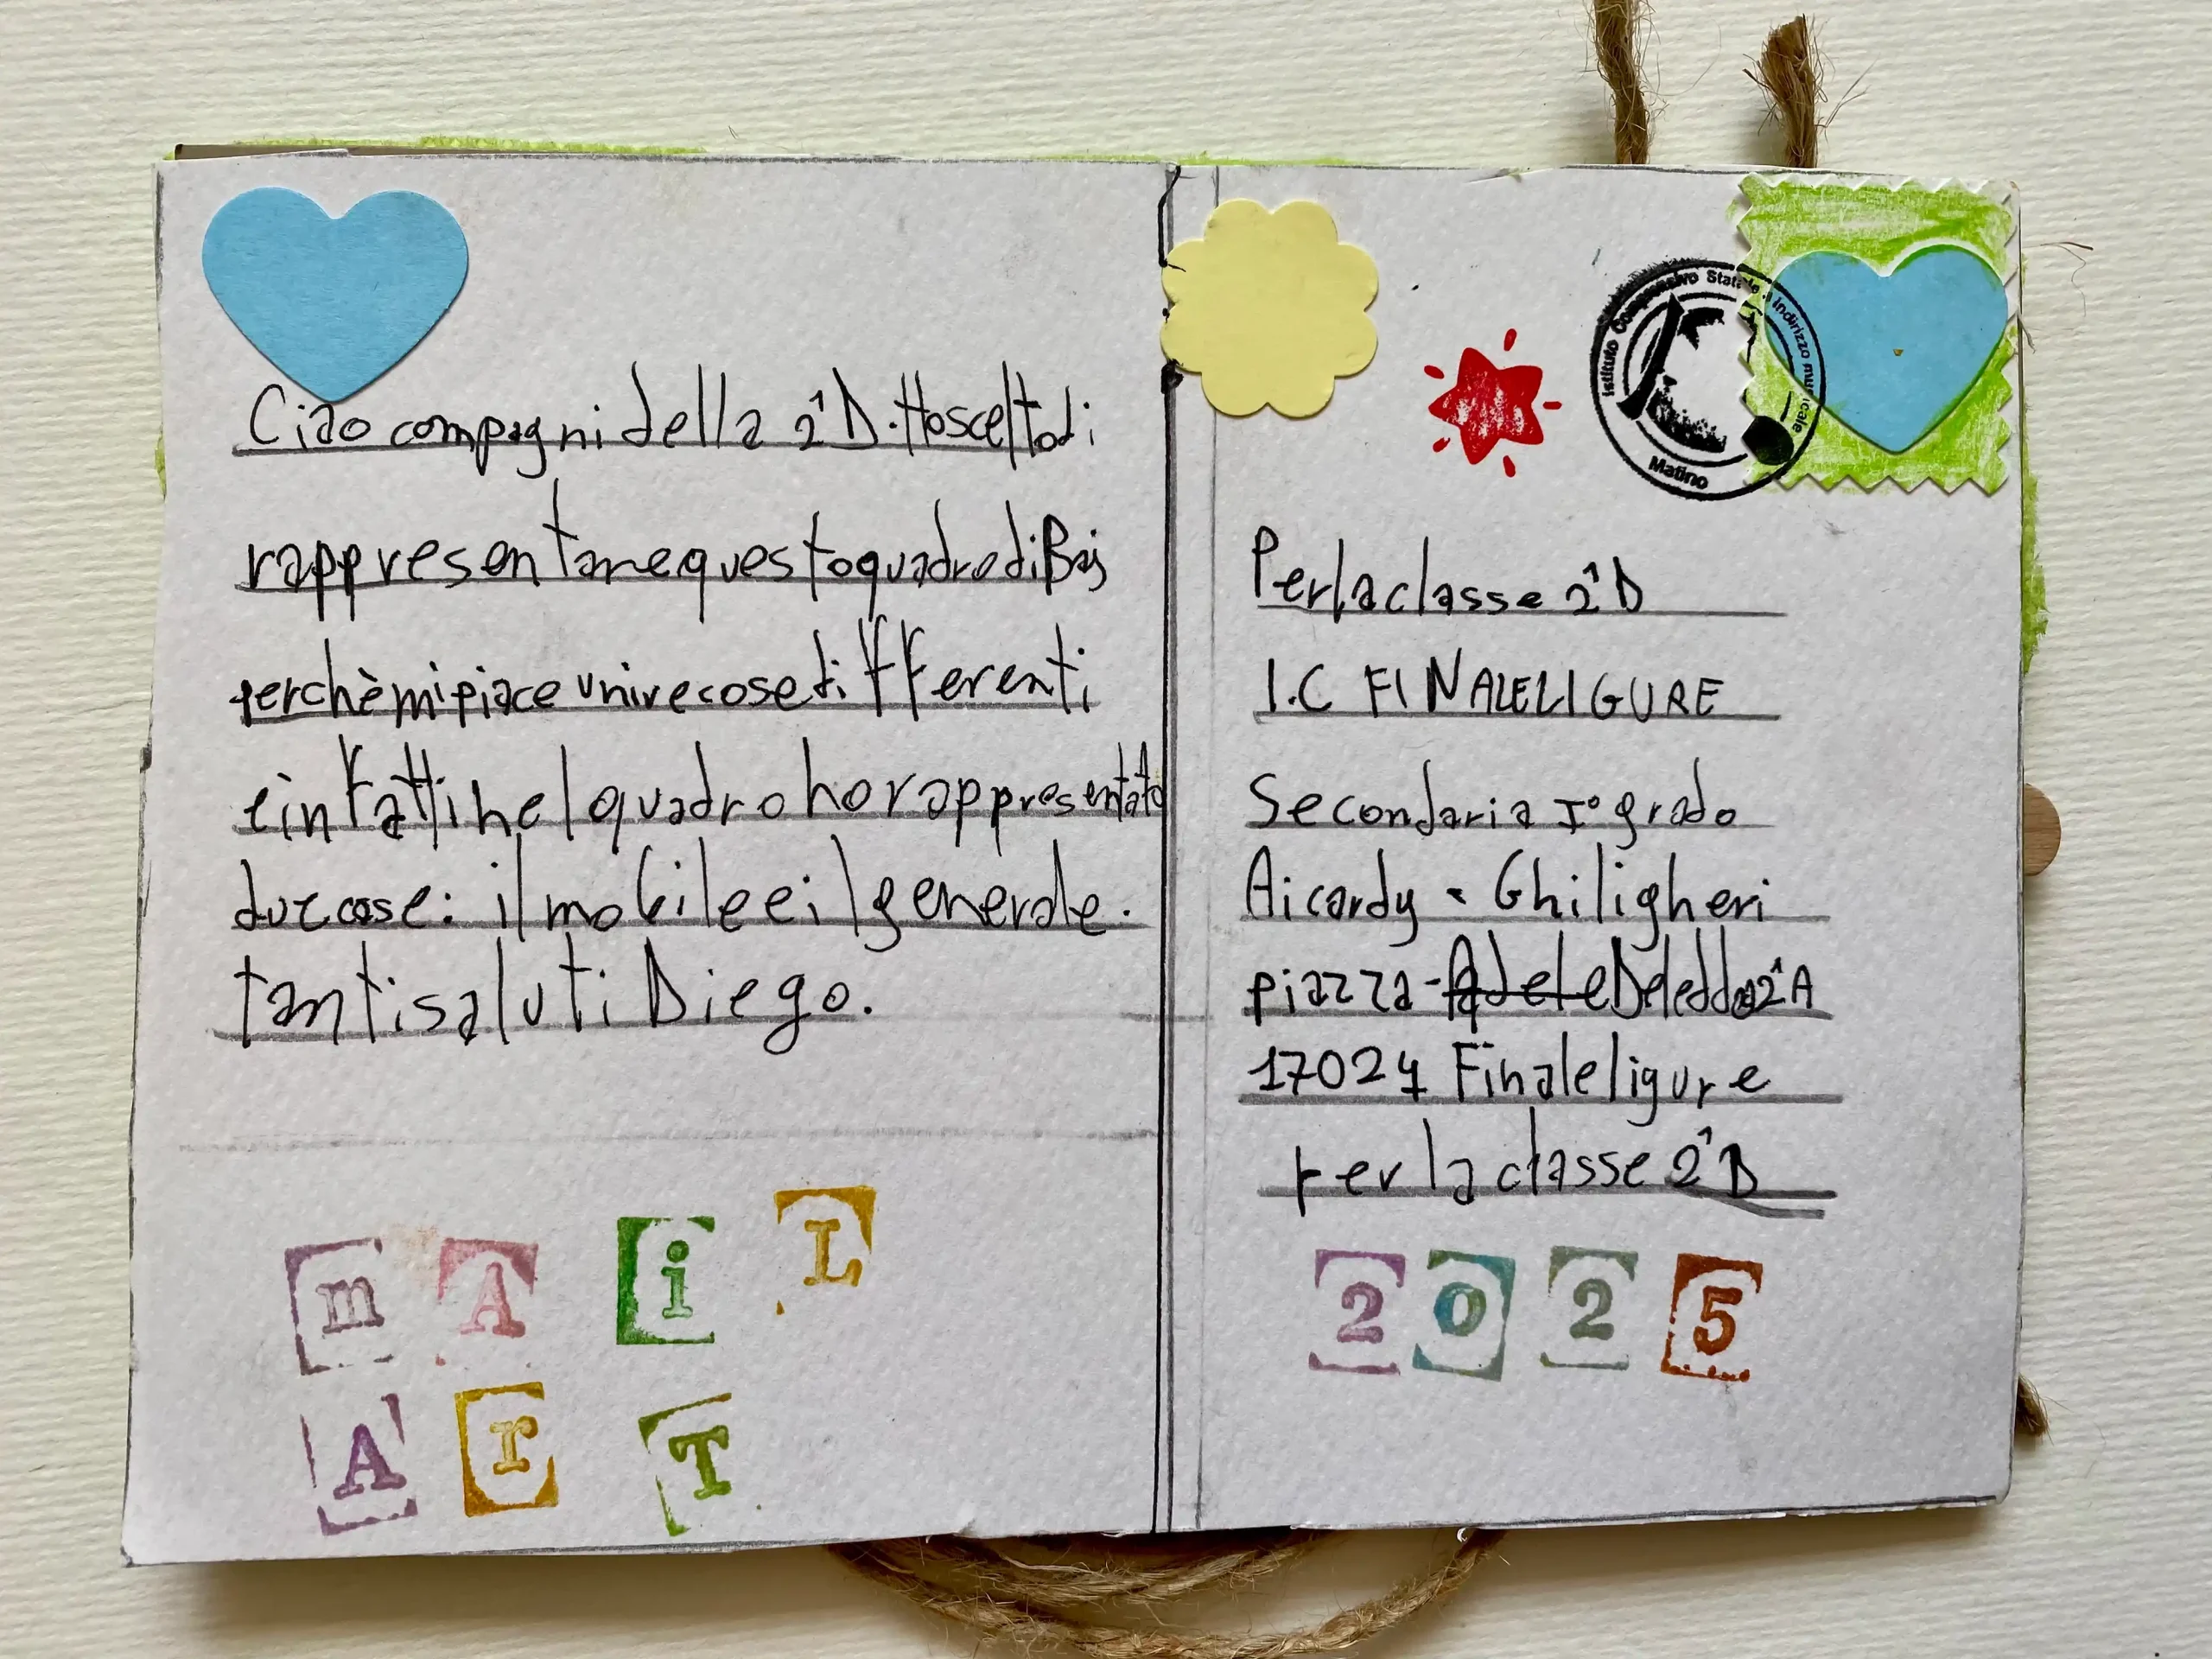 Ciao compagni della 2^D. Ho scelto di
rappresentare questo quadro di Baj
perchè mi piace unire cose differenti
e infatti nel quadro ho rappresentato
due cose: il mobile e il generale.
tanti saluti Diego.
m A i L
A r T
Istituto Comprensivo Statale a indirizzo musicale
Matino
Per la classe 2^D
I.C FINALE LIGURE
Secondaria I° grado
Aicardy - Ghiligheri
piazza - Adele Deledda 2^A
17024 Finale ligure
per la classe 2^D
2025